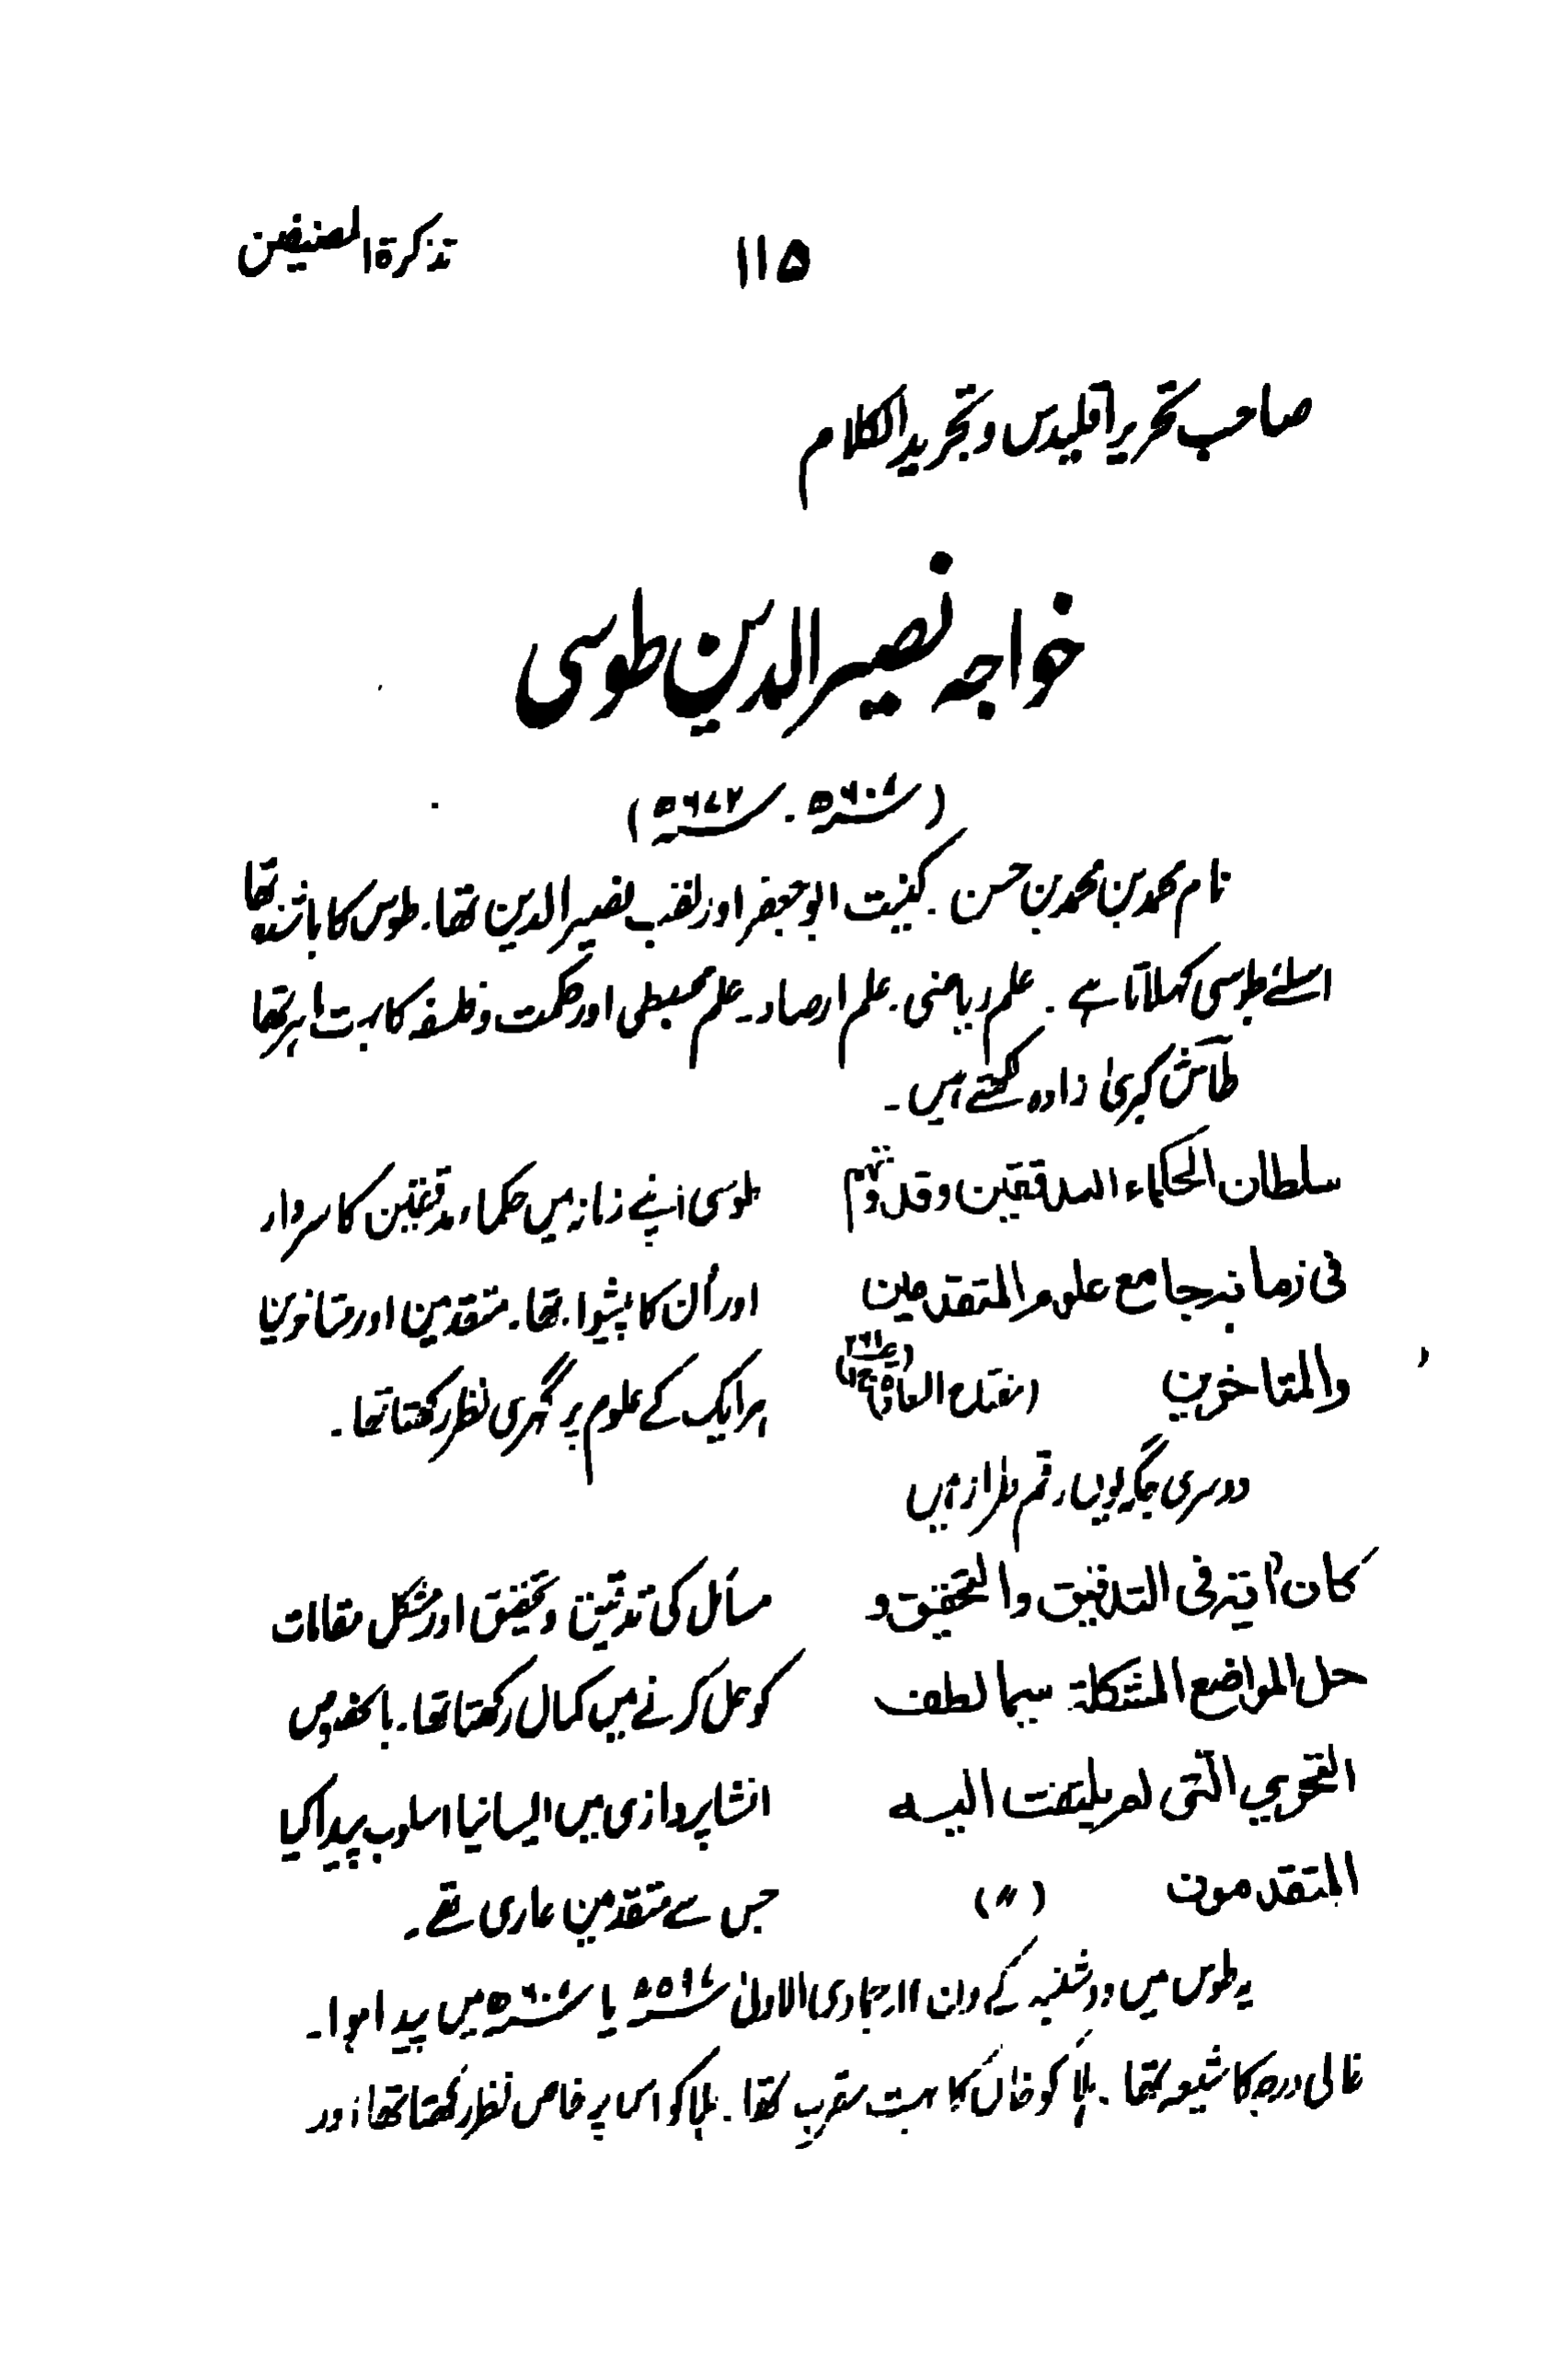 تذکرۃ المصنفین
۱۱۵
صاحب تحریر اقلیدس و تجرید الکلام
خواجہ نصیر الدین طوسی
(۶۰۷ھ ۔ ۶۷۲ھ)
نام محمد بن محمد بن حسن ۔ کنیت ابو جعفر اور لقب نصیر الدین تھا۔ طوس کا باشندہ تھا
اسلئے طوسی کہلاتا ہے ۔ علم ریاضی ۔ علم ارصاد ۔ علم مجسطی اور حکمت و فلسفہ کا بہت ماہر تھا
طاش کبریٰ زادہ لکھتے ہیں ۔
سلطان الحکماء المدققین وقدوتہم
فی زمانہ جامع علوم المتقدمین
والمتاخرین (مفتاح السعادۃ
طوسی اپنے زمانہ میں حکماء مدققین کا سردار
اور اُن کا پیشوا تھا۔ متقدمین اور متاخرین
ہر ایک کے علوم پر گہری نظر رکھتا تھا ۔
دوسری جگہ یوں رقم طراز ہیں
کان آیۃ فی التدقیق والتحقیق و
حل المواضع المشکلۃ سیما لطف
التحریر التی لم یلتفت الیہ
المتقدمون (〃)
مسائل کی تدقیق و تحقیق اور مشکل مقامات
کو حل کرنے میں کمال رکھتا تھا۔ بالخصوص
انشا پردازی میں ایسا نیا اسلوب پیدا کیا
جس سے متقدمین عاری تھے ۔
یہ طوس میں دوشنبہ کے دن ۱۱ر جمادی الاولیٰ ۵۹۷ھ یا ۶۰۷ھ میں پیدا ہوا ۔
غالی درجہ کا شیعہ تھا ۔ ہلاکو خاں کا بہت مقرب تھا ۔ ہلاکو اس پر خاص نظر رکھتا تھا اور